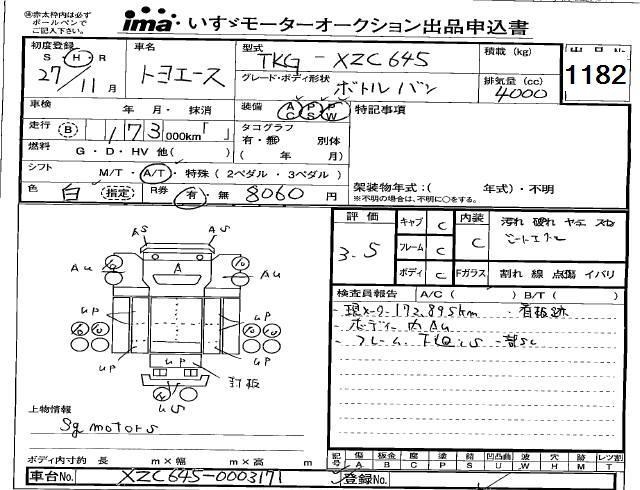 ㊟赤太枠内は必ず
ボールペンで
ご記入下さい。
ima いすゞモーターオークション出品申込書
初度登録 S・H・R 27年 11月
車名 トヨエース
型式 TKG - XZC645
グレード・ボディ形状 ボトルバン
積載 (kg)
排気量 (cc) 4000
出品No
1182
車検 年・月・抹消
装備 AC PS PW
特記事項
走行 B 173 000km「 」
タコグラフ 有・無 別体
( 年 月)
燃料 G・D・HV 他( )
シフト M/T・A/T・特殊 (2ペダル・3ペダル)
色 白 (指定) R券 有・無 8060 円
架装物年式:( 年式)・不明
※不明の場合は、不明に○をする。
評価 3.5
キャブ C
フレーム C
ボディ C
内装 C
汚れ 破れ ヤニ スレ
Fガラス 割れ 線 点傷 イバリ
検査員報告 A/C ( ) B/T ( )
・現メーター172,895km ・看板跡
・ボディー内AU
・フレーム
AS AS
AU AU
A
UP UP
UP UP
UP
釘板
US
上物情報
Sg motors
ボディ内寸約 長 m×幅 m×高 m
記号 傷 A 板金 B 腐 C 塗 P 錆 S 凹凸曲 U 波 W 穴 H 跡 M レツ割 T
車台No. XZC645-0003171
登録No.